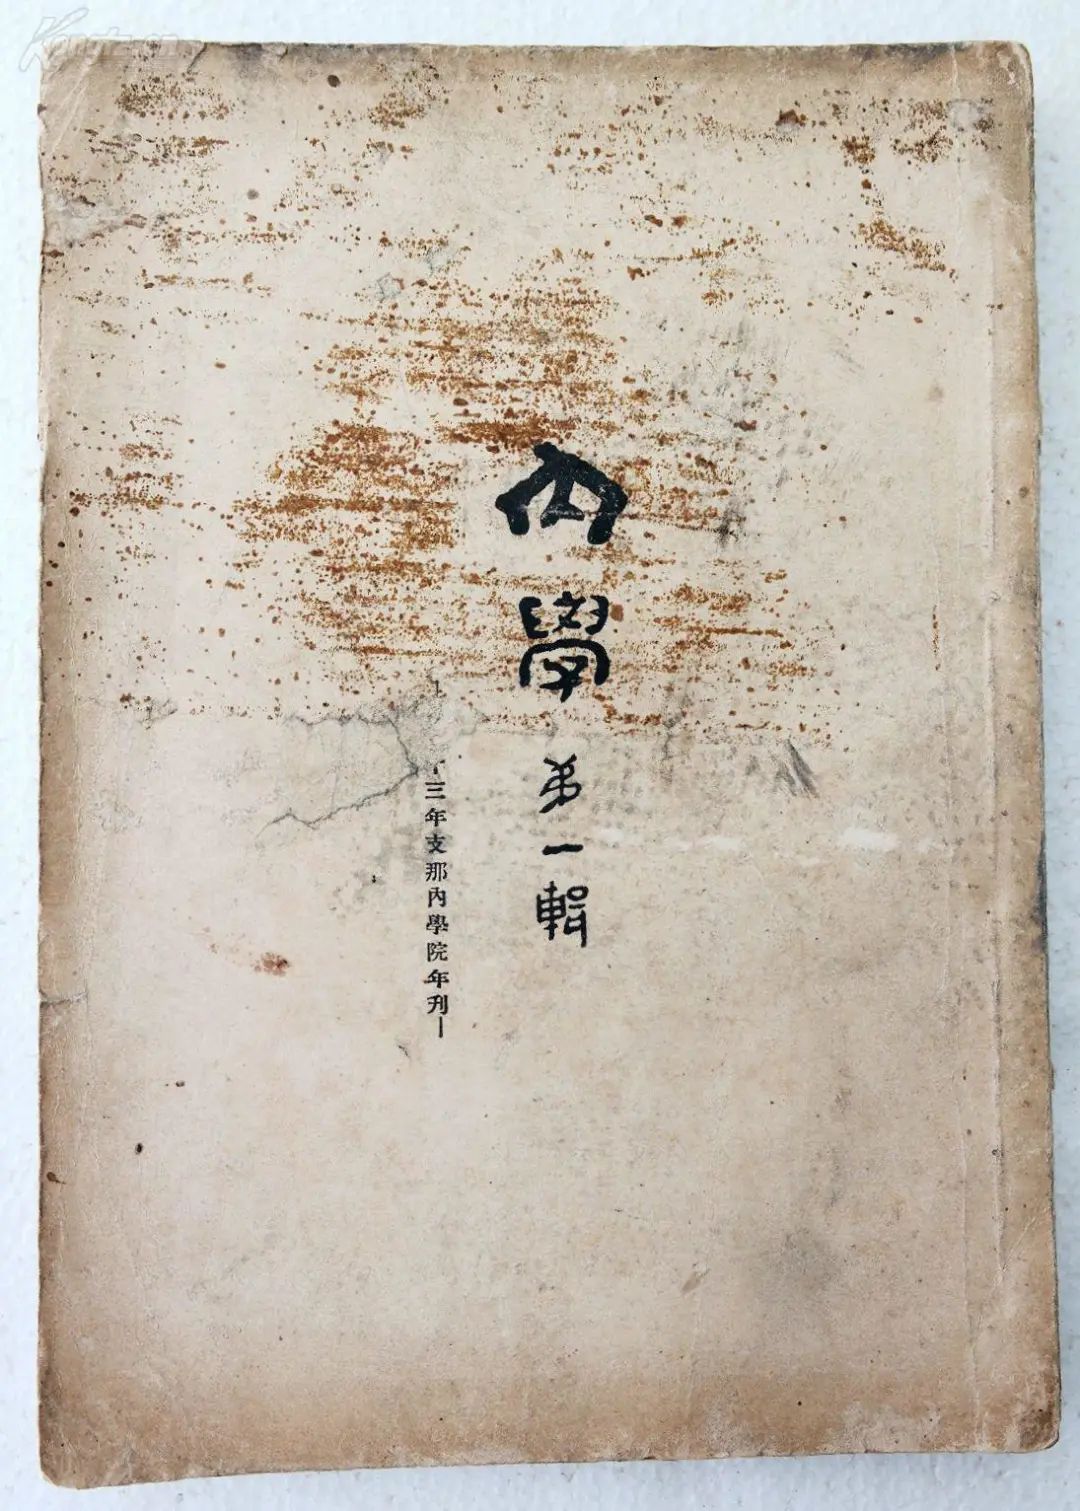 內學
第一輯
三年支那內學院年刊—